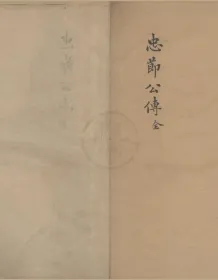 忠節公傳全